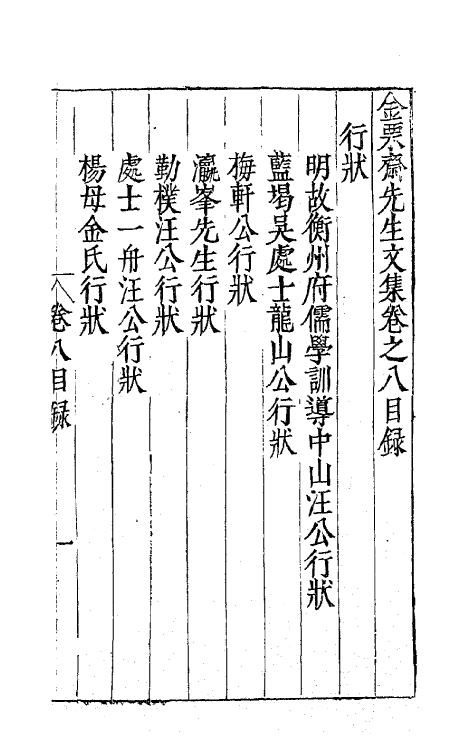 金栗齋先生文集卷之八目録
行狀
明故衡州府儒學訓導中山汪公行狀
藍堨吴處士龍山公行狀
梅軒公行狀
瀛峯先生行狀
勤樸汪公行狀
處士一舟汪公行狀
楊母金氏行狀
卷八目録 一